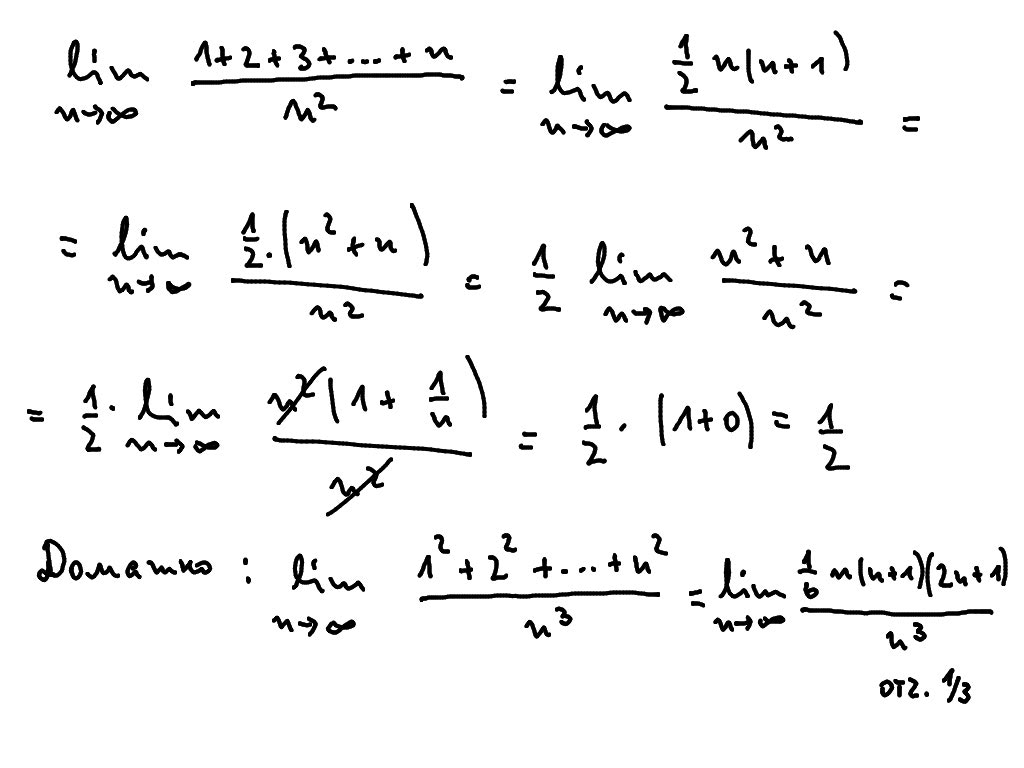 lim n→∞ (1+2+3+...+n)/n² = lim n→∞ (½ n(n+1))/n² =
= lim n→∞ (½·(n²+n))/n² = ½ lim n→∞ (n²+n)/n² =
= ½· lim n→∞ (n²(1+1/n))/n² = ½·(1+0) = ½
Домашно: lim n→∞ (1²+2²+...+n²)/n³ = lim n→∞ (1/6 n(n+1)(2n+1))/n³
отг. 1/3